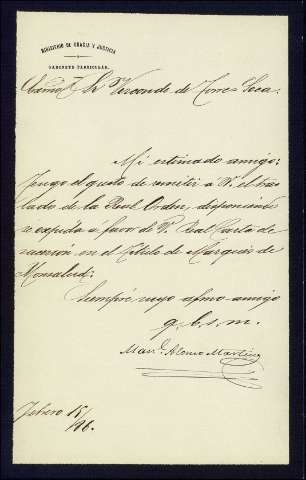 MINISTERIO DE GRACIA Y JUSTICIA
GABINETE PARTICULAR.
Sr Vizconde de Torres Seca.
Mi estimado amigo:
Tengo el gusto de remitir a V. el tras
lado de la Real Orden, disponiendo
se expida a favor de V. Real Carta de
sucesión en el Título de Marqués de
Monsalud.
Siempre suyo afmo amigo
q. b. s. m.
Manl. Alonso Martínez
Febrero 15/